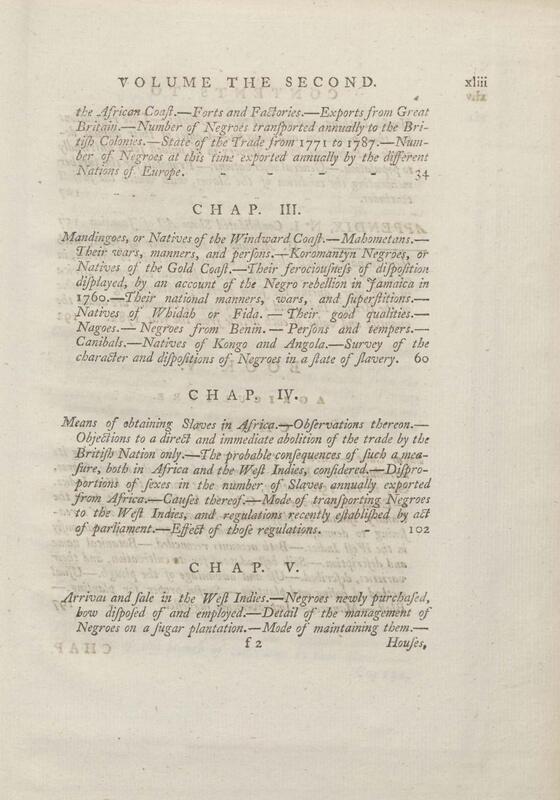 VOLUME THE SECOND. xliii
the African Coaſt.—Forts and Factories.—Exports from Great
Britain.—Number of Negroes tranſported annually to the Bri-
tiſh Colonies.—State of the Trade from 1771 to 1787.—Num-
ber of Negroes at this time exported annually by the different
Nations of Europe. - - - - - 34
CHAP. III.
Mandingoes, or Natives of the Windward Coaſt.—Mahometans.—
Their wars, manners, and perſons.—Koromantyn Negroes, or
Natives of the Gold Coaſt.—Their ferociouſneſs of diſpoſition
diſplayed, by an account of the Negro rebellion in Jamaica in
1760.—Their national manners, wars, and ſuperſtitions.—
Natives of Whidah or Fida.—Their good qualities.—
Nagoes.—Negroes from Benin.—Perſons and tempers.—
Canibals.—Natives of Kongo and Angola.—Survey of the
character and diſpoſitions of Negroes in a ſtate of ſlavery. 60
CHAP. IV.
Means of obtaining Slaves in Africa.—Obſervations thereon.—
Objections to a direct and immediate abolition of the trade by the
Britiſh Nation only.—The probable conſequences of ſuch a mea-
ſure, both in Africa and the Weſt Indies, conſidered.—Diſpro-
portions of ſexes in the number of Slaves annually exported
from Africa.—Cauſes thereof.—Mode of tranſporting Negroes
to the Weſt Indies, and regulations recently eſtabliſhed by act
of parliament.—Effect of thoſe regulations. - 102
CHAP. V.
Arrival and ſale in the Weſt Indies.—Negroes newly purchaſed,
how diſpoſed of and employed.—Detail of the management of
Negroes on a ſugar plantation.—Mode of maintaining them.—
f 2 Houſes,